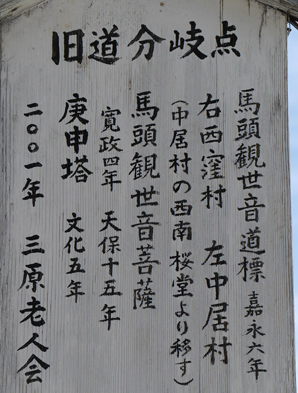 旧道分岐点
馬頭観世音道標 嘉永六年
右西窪村 左中居村
(中居村の西南 桜堂より移す)
馬頭観世音菩薩
寛政四年 天保十五年
庚申塔 文化五年
二〇〇一年 三原老人会